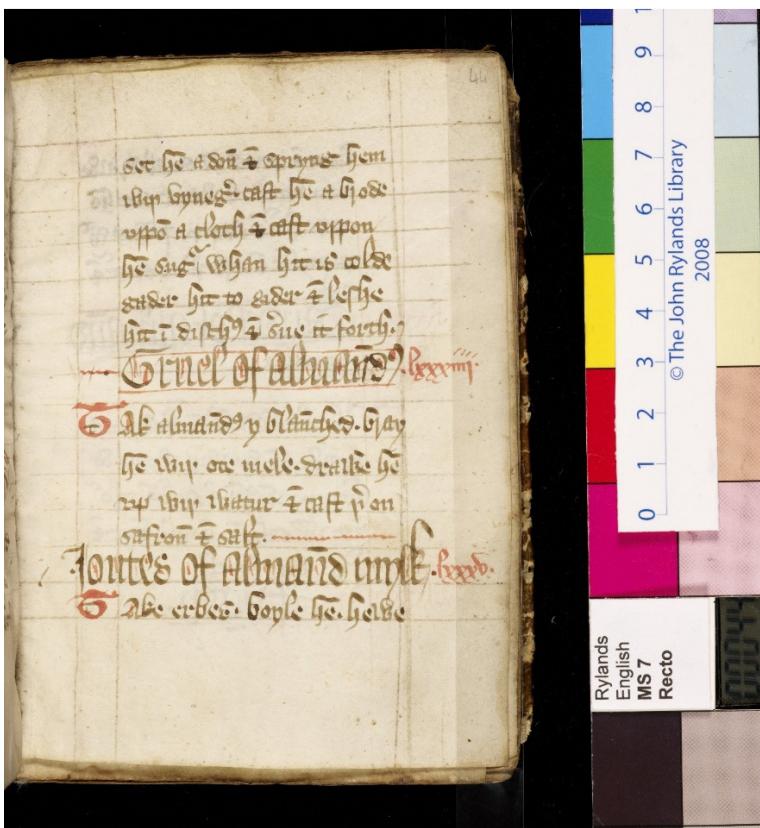 44
set hē a doū & spryng hem
wiþ vyneg̉. cast hē a brode
vppō a cloth & cast vppon
hē sugᵃ, whan hit is colde
gader hit to gider & leshe
hit ī disshꝰ & s̉ue it forth.
Gruel of almaūdꝰ. lxxxiiii.
Tak almaūdꝰ y blaūched. bray
hē wiþ ote mele. drawe hē
vp wiþ watur & cast þ̉on
safroū & salt.
Joutes of almaūd mylk. lxxxv.
Take erbes. boyle hē. hewe
0 1 2 3 4 5 6 7 8 9 1
© The John Rylands Library
2008
Rylands
English
MS 7
Recto